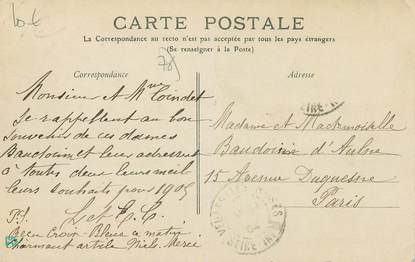 CARTE POSTALE
La Correspondance au recto n'est pas acceptée par tous les pays étrangers
(Se renseigner à la Poste)
Correspondance
Adresse
78
Monsieur et Mme Coindet
se rappellent au bon
souvenir de ces dames
Baudouin et leur adressent
à toutes deux leurs meil
leurs souhaits pour 1905
L et E. C.
Ps/
Reçu Croix Bleue ce matin
charmant article Mal. Merci
Madame et Mademoiselle
Baudouin d'Aulne
15 Avenue Duquesne
Paris